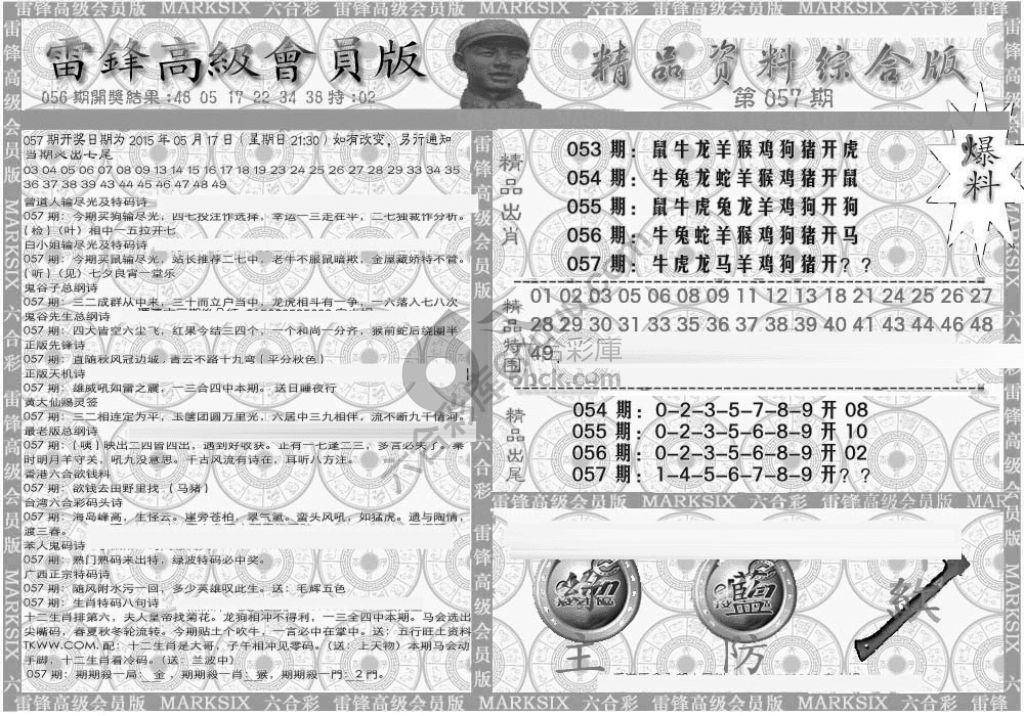 雷锋高级会员版 MARKSIX 六合彩 雷锋高级会员版 MARKSIX 六合彩 雷锋高级会员版 MARKSIX 六合彩 雷锋
雷鋒高級會員版
精品资料综合版
056期開獎結果:48 05 17 22 34 38 特:02
第057期
057期开奖日期为2015年05月17日（星期日21:30）如有改变，另行通知
当期必出七尾
03 04 05 06 07 08 09 13 14 15 16 17 18 19 23 24 25 26 27 28 29 33 34 35
36 37 38 39 43 44 45 46 47 48 49
曾道人输尽光及特码诗
057期：今期买狗输尽光，四七投注作选择，幸运一三走在平，二七独裁作分析。
{检}（叶）相中一五拉开七
白小姐输尽光及特码诗
057期：今期买鼠输尽光，站长推荐二七中，老牛不服鼠暗欺，金屋藏娇特不管。
{听}（见）七夕良宵一堂乐
鬼谷子总纲诗
057期：三二成群从中来，三十而立户当中，龙虎相斗有一争，一六落入七八次
鬼谷先生总纲诗
057期：四大皆空六尘飞，红果今结三四个，一个和尚一分齐，猴前蛇后绕圈半
正版先锋诗
057期：直随秋风冠边城，青云不路十九弯{平分秋色}
正版天机诗
057期：雄威吼如雷之震，一三合四中本期。送日睡夜行
黄大仙赐灵签
057期：三二相连定为平，玉箧团圆万里光，六居中三九相伴，流不断九千情河。
最老版总纲诗
057期：{咦}映出二四皆四出，遇到好收获。正有一七逢二三，多言必失了。秦
时明月羊守关，吼九没意思。千古风流有诗在，耳听八方注。
香港六合欲钱料
057期：欲钱去田野里找｛马猪｝
台湾六合彩码头诗
057期：海岛峰高，生怪云。崖旁苍柏，翠气氤。蛮头风吼，如猛虎。遗与陶情，
渡三春。
本人鬼码诗
057期：熟门熟码来出特，绿波特码必中奖。
广西正宗特码诗
057期：随风附水污一回，多少英雄叹此生。送：毛辉五色
057期：生肖特码八句诗
十二生肖排第六，夫人皇帝找菊花。龙狗相冲不得利，一三全四中本期。马会选出
尖嘴码，春夏秋冬轮流转。今期贴士个吹牛，一言必中在掌中。送：五行旺土资料
TKWW.COM. 配：十二生肖是大哥，子午相冲见零码。（送：上天物）本期马会动
手脚，十二生肖看冷码。（送：兰波中）
057期：期期殺一局：金，期期殺一肖：猴，期期殺一門：2門。
精品出肖
053期：鼠牛龙羊猴鸡狗猪开虎
054期：牛兔龙蛇羊猴鸡猪开鼠
055期：鼠牛虎兔龙羊鸡狗开狗
056期：牛兔蛇羊猴鸡狗猪开马
057期：牛虎龙马羊鸡狗猪开？？
爆料
精品特围
01 02 03 05 06 08 09 11 12 13 18 21 24 25 26 27
28 29 30 31 33 35 36 37 38 39 40 41 43 44 46 48
49
六合彩庫
6hck.com
精品出尾
054期：0-2-3-5-7-8-9开08
055期：0-2-3-4-5-6-8开10
056期：0-2-3-5-6-8-9开02
057期：1-4-5-6-7-8-9开？？
雷锋高级会员版 MARKSIX 六合彩 雷锋高级会员版 MARKSIX
藍
主 防
雷锋高级会员版 MARKSIX 六合彩 雷锋高级会员版 MARKSIX 六合彩 雷锋高级会员版 MARKSIX 六合彩 雷锋